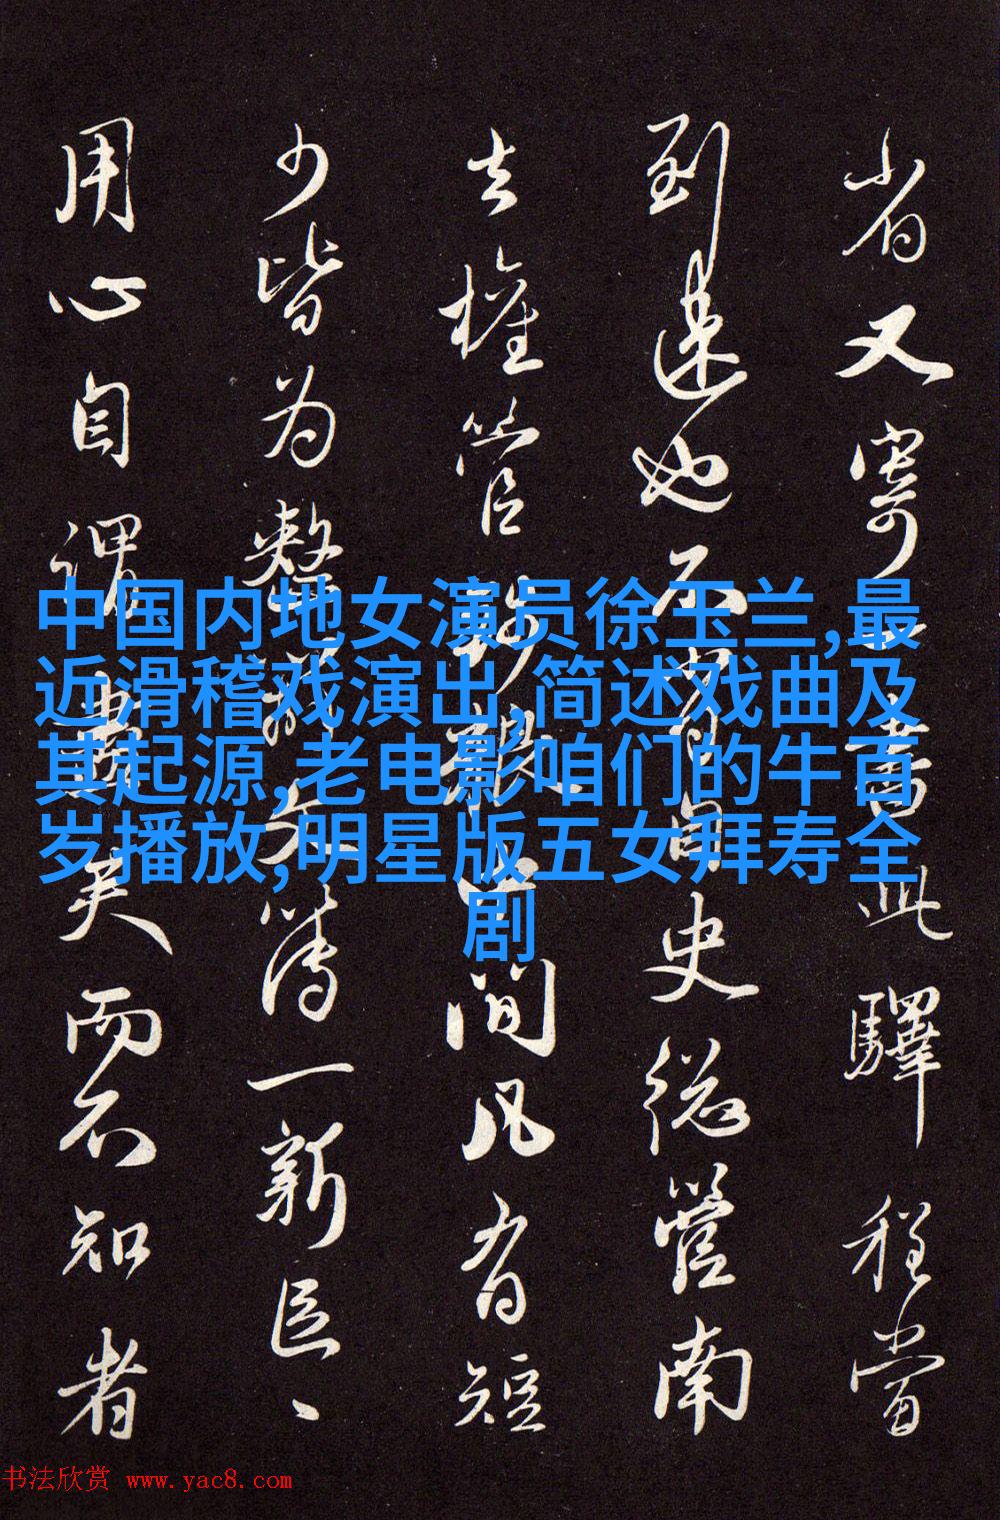 中国内地女演员徐玉兰,最
近滑稽戏演出,简述戏曲及
其起源,老电影咱们的牛百
岁播放,明星版五女拜寿全
剧
省又寄書此驛程當
到速也不自史総管南
去權管間凡有短
少皆为整簿一新
用心自謂矣而不知者
书法欣赏 www.yac8.com